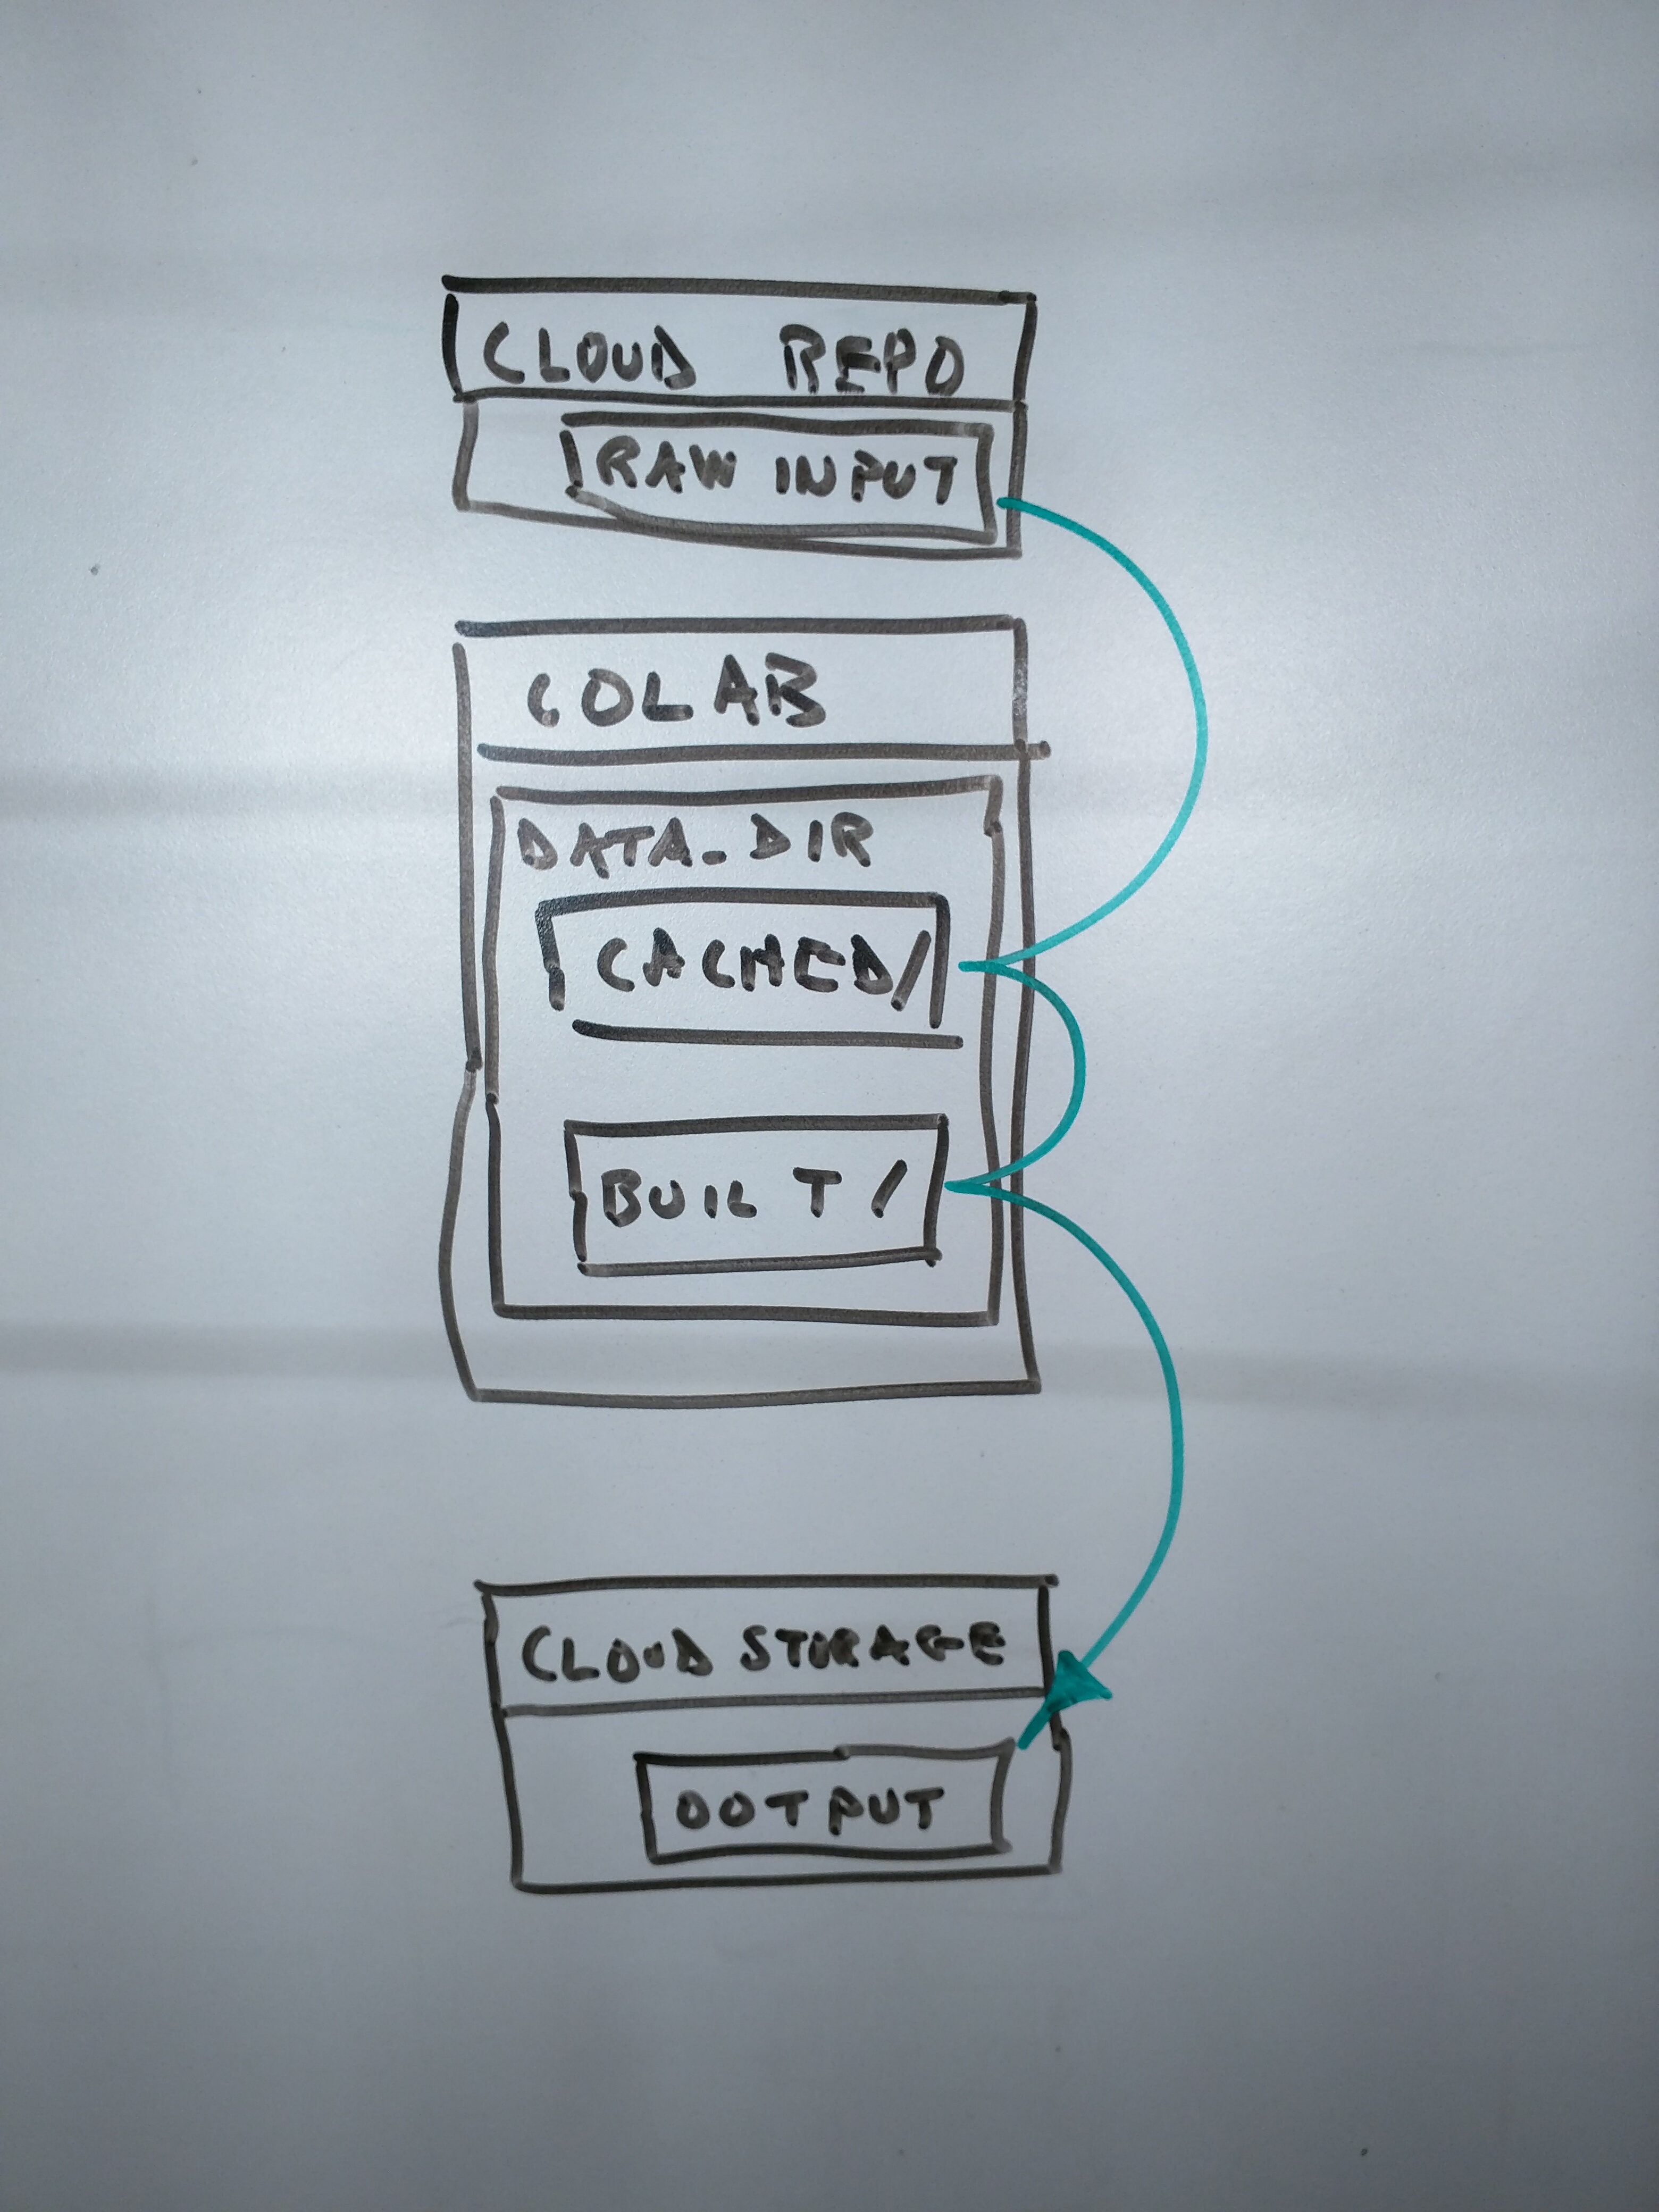 CLOUD REPO
RAW INPUT
COLAB
DATA_DIR
CACHED/
BUILT/
CLOUD STORAGE
OUTPUT